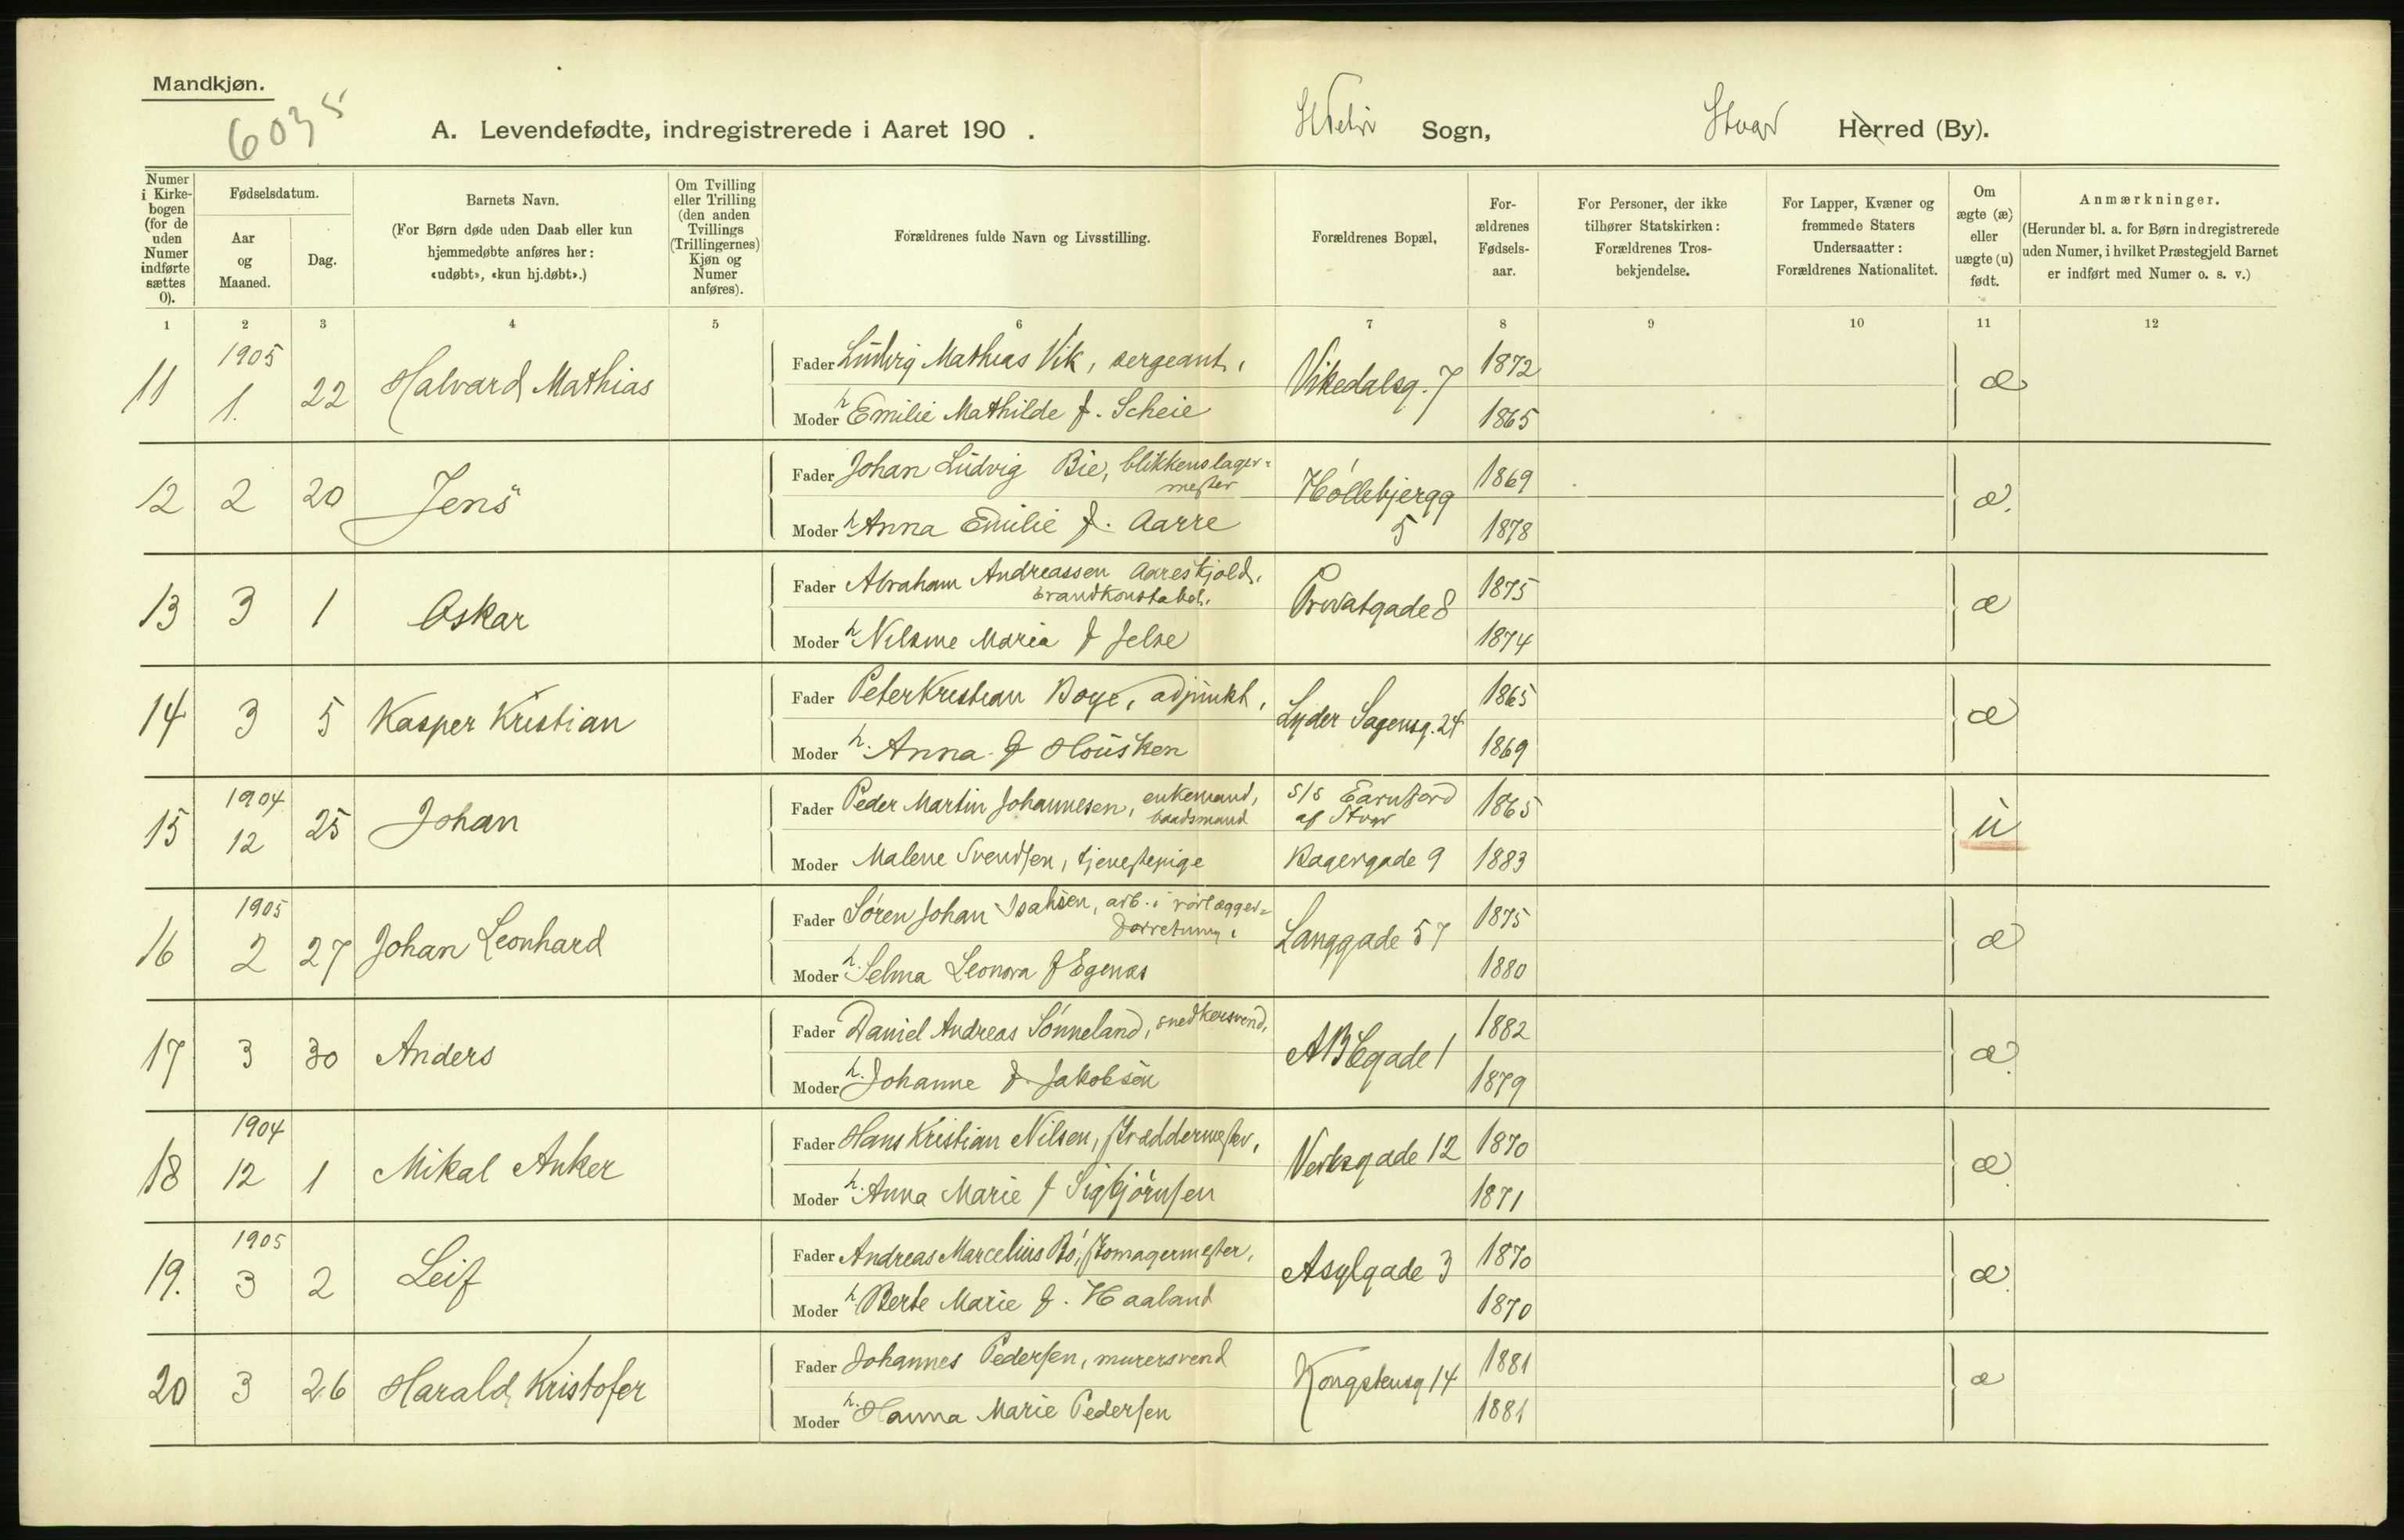 Mandkjøn.
6035
A. Levendefødte, indregistrerede i Aaret 190 .
Sogn,
Stvgr
Herred (By).
Numer i Kirkebogen (for de uden Numer indførte sættes 0).
Fødselsdatum.
Aar og Maaned.
Dag.
Barnets Navn.
(For Børn døde uden Daab eller kun hjemmedøbte anføres her: «udøbt», «kun hj.døbt».)
Om Tvilling eller Trilling (den anden Tvillings (Trillingernes) Kjøn og Numer anføres).
Forældrenes fulde Navn og Livsstilling.
Forældrenes Bopæl,
Forældrenes Fødselsaar.
For Personer, der ikke tilhører Statskirken: Forældrenes Trosbekjendelse.
For Lapper, Kvæner og fremmede Staters Undersaatter: Forældrenes Nationalitet.
Om ægte (æ) eller uægte (u) født.
Anmærkninger.
(Herunder bl. a. for Børn indregistrerede uden Numer, i hvilket Præstegjeld Barnet er indført med Numer o. s. v.)
1 2 3 4 5 6 7 8 9 10 11 12
11 1905 1. 22 Halvard Mathias
Fader Ludvig Mathias Vik, sergeant, Vikedalsg. 7 1872 æ
Moder h Emilie Mathilde f. Scheie 1865
12 2 20 Jens
Fader Johan Ludvig Bie, blikkenslager=
mester Høllebjergg 5 1869 æ.
Moder h Anna Emilie f. Aarre 1878
13 3 1 Oskar
Fader Abraham Andreassen Aareskjold,
brandkonstabel, Privatgade 8 1875 æ
Moder h Nilsine Maria f Jelse 1874
14 3 5 Kasper Kristian
Fader Peter Kristian Boye, adjunkt, Lyder Sagensg. 24 1865 æ
Moder h. Anna f Housken 1869
15 1904 12 25 Johan
Fader Peder Martin Johannesen, enkemand,
baadsmand S/S Earnford
af Stvgr 1865 u
Moder Malene Svendsen, tjenestepige Bagergade 9 1883
16 1905 2 27 Johan Leonhard
Fader Søren Johan Isaksen, arb. i rørlægger=
forretning, Langgade 57 1875 æ
Moder h. Selma Leonora f Egenæs 1880
17 3 30 Anders
Fader Daniel Andreas Sønneland, snedkersvend, ABCgade 1 1882 æ.
Moder h. Johanne f. Jakobsen 1879
18 1904 12 1 Mikal Anker
Fader Hans Kristian Nilsen, skræddermester, Verksgade 12 1870 æ.
Moder h. Anna Marie f Sigbjørnsen 1871
19. 1905 3 2 Leif
Fader Andreas Marcelius Bø, skomagermester, Asylgade 3 1870 æ.
Moder h Berte Marie f. Haaland 1870
20 3 26 Harald Kristofer
Fader Johannes Pedersen, murersvend Kongstensg 14 1881 æ
Moder h. Hanna Marie Pedersen 1881